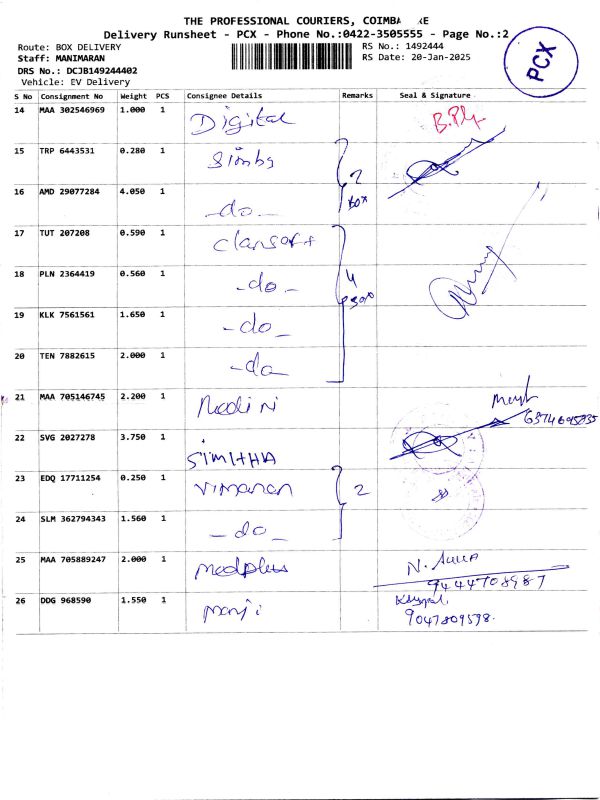 THE PROFESSIONAL COURIERS, COIMBA RE
Delivery Runsheet - PCX - Phone No.:0422-3505555 - Page No.:2
Route: BOX DELIVERY
RS No.: 1492444
Staff: MANIMARAN
RS Date: 20-Jan-2025
DRS No.: DCJB149244402
Vehicle: EV Delivery
PCX
S No Consignment No Weight PCS Consignee Details Remarks Seal & Signature
14 MAA 302546969 1.000 1 Digital
15 TRP 6443531 0.280 1 2
16 AMD 29077284 4.050 1 -do- Box
17 TUT 207208 0.590 1 clansoft
18 PLN 2364419 0.560 1 -do- 4
19 KLK 7561561 1.650 1 -do-
20 TEN 7882615 2.000 1 -do-
21 MAA 705146745 2.200 1
22 SVG 2027278 3.750 1 SIMITHA
23 EDQ 17711254 0.250 1 Vimanan 2
24 SLM 362794343 1.560 1 -do-
25 MAA 705889247 2.000 1 medplus
9444708987
26 DDG 968590 1.550 1 manji
9047809598.